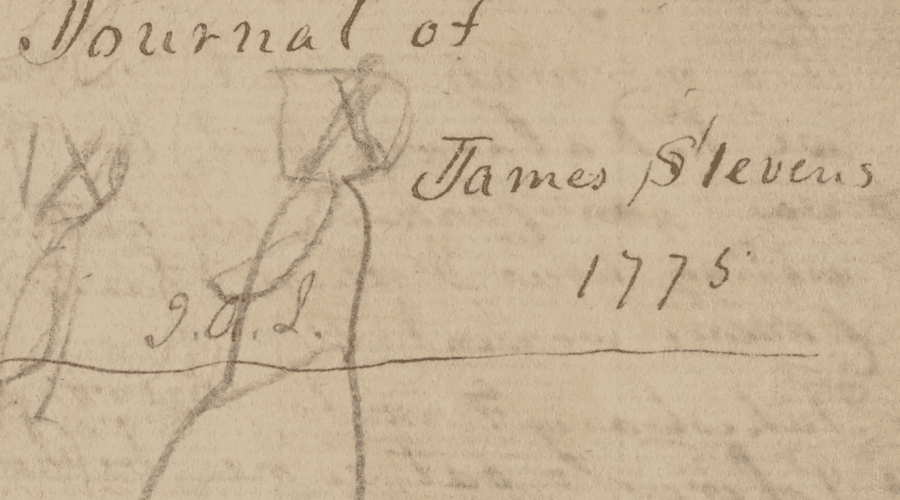 Journal of
James Stevens
1775